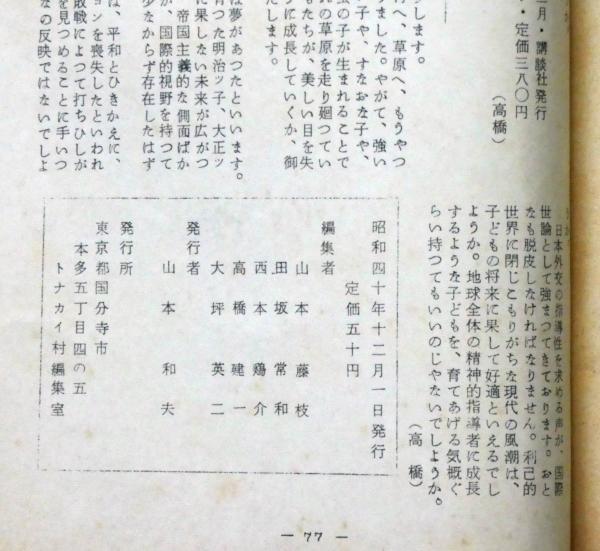 月・講談社発行
・定価三八〇円
（高橋）
します。
行へ、草原へ、もうやつ
ました。やがて、強い
子や、すなおな子や、
虫の子が生まれることで
の草原を走り廻つてい
もたちが、美しい目を失
うに成長していくか、御
たします。
は夢があつたといいます。
育つた明治ッ子、大正ッ
に果しない未来が広がつ
帝国主義的な側面ばか
が、国際的視野を持つて
少なからず存在したはず
は、平和とひきかえに、
ョンを喪失したといわれ
敗戦によつて打ちひしが
を見つめることに手いつ
なの反映ではないでしよ
日本外交の指導性を求める声が、国際
世論として強まつてきております。おと
なも脱皮しなければなりません。利己的
世界に閉じこもりがちな現代の風潮は、
子どもの将来に果して好適といえるでし
ようか。地球全体の精神的指導者に成長
するような子どもを、育てあげる気概ぐ
らい持つてもいいのじやないでしようか。
（高橋）
昭和四十年十二月一日発行
定価五十円
編集者
山本藤枝
田坂常和
西本鶏介
高橋健一
大坪英二
発行者
山本和夫
発行所
東京都国分寺市
本多五丁目四の五
トナカイ村編集室
― 77 ―